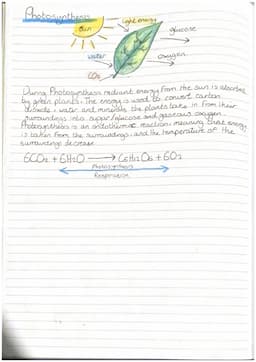 Photosynthesis
Sun
light energy
glucose
water
oxygen
CO₂
During Photosynthesis radiant energy from the sun is absorbed
by green plants. The energy is used to convert carbon
dioxide, water and minerals the plants take in from their
surroundings into sugar/glucose and gaseous oxygen.
Photosynthesis is an endothermic reaction, meaning that energy
is taken from the surroundings and the temperature of the
surroundings decrease
6CO₂ + 6H₂O → C₆H₁₂O₆ + 6O₂
Photosynthesis
Respiration